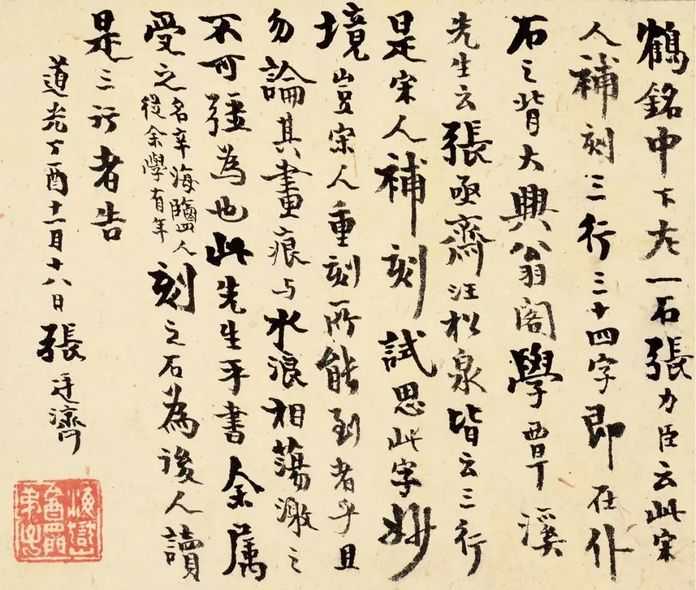 鶴銘中下左一石張力臣云此宋
人補刻三行三十四字即在仆
石之背大興翁閣學覃溪
先生云張亟齋汪松泉皆云三行
是宋人補刻試思此字妙
境豈宋人重刻所能到者乎且
勿論其畫痕与水浪相蕩漱之
不可彊為也此先生手書余属
受之名辛海鹽人從余學有年刻之石為後人讀
是三行者告
道光丁酉十一月十八日張廷濟